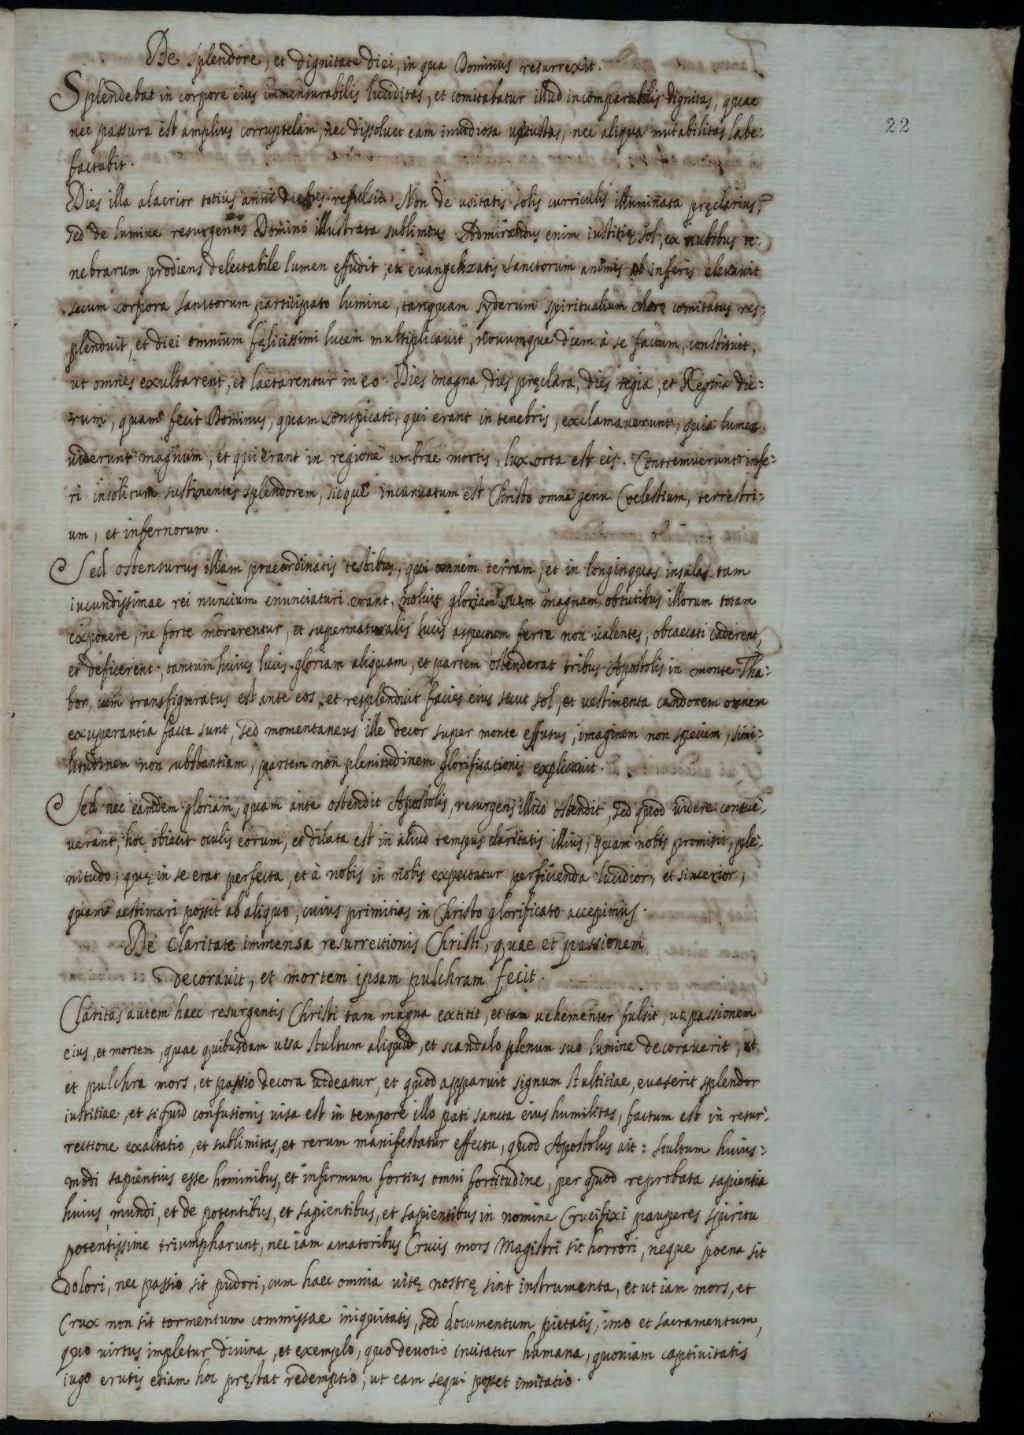 De splendore, et dignitate diei, in qua Dominus resurrexit.
Splendebat in corpore eius immensurabilis luciditas, et comitabatur illud incomparabilis dignitas, quae
22
nec passura est amplius corruptelam, nec dissoluet eam inuidiosa uetustas, nec aliqua mutabilitas labe:
factabit.
Dies illa alacrior totius anni diebus refulsit. Non de usitatis solis curriculis illuminata pręclarius,
sed de lumine resurgentis Domini illustrata sublimius. Admirandus enim iustitię sol, ex nubibus te:
nebrarum prodiens delectabile lumen effudit, et euangelizatis sanctorum animis ab inferis eleuauit
secum corpora sanctorum participato lumine, tanquam syderum spiritualium choro comitatus res:
plenduit, et diei omnium fęlicissimi lucem multiplicauit, nouumque diem à se factum, constituit,
ut omnes exultarent, et laetarentur in eo. Dies magna, dies pręclara, dies regia, et Regina die:
rum, quam fecit Dominus, quam conspicati, qui erant in tenebris, exclamauerunt, quia lumen
uiderunt magnum, et qui erant in regione umbrae mortis, lux orta est eis. Contremuerunt infe:
ri insolitum sustinentes splendorem, sicque incuruatum est Christo omne genu Coelestium, terrestri:
um, et infernorum.
Sed ostensurus illam praeordinatis testibus, qui omnem terram, et in longinquas insulas tam
iucundissimae rei nuncium enunciaturi erant, noluit gloriam suam magnam obtutibus illorum totam
exponere, ne forte morerentur, et supernaturalis lucis aspectum ferre non ualentes, obcaecati caderent,
et deficerent, tantum huius lucis gloriam aliquam, et partem ostenderat tribus Apostolis in monte Tha:
bor, cum transfiguratus est ante eos, et resplenduit facies eius sicut sol, et uestimenta candorem omnem
exuperantia facta sunt, sed momentaneus ille decor super monte effusus, imaginem non speciem, simi:
litudinem non substantiam, partem non plenitudinem glorificationis explicauit.
Sed nec eamdem gloriam, quam ante ostendit Apostolis, resurgens illico ostendit, sed quod uidere consue:
uerant, hoc obiecit oculis eorum, et dilata est in aliud tempus claritatis illius, quam nobis promisit, ple:
nitudo, quę in se erat perfecta, et à nobis in nobis expectatur perficienda lucidior, et sincerior,
quam aestimari possit ab aliquo, cuius primitias in Christo glorificato accepimus.
De claritate immensa resurrectionis Christi, quae et passionem
decorauit, et mortem ipsam pulchram fecit.
Claritas autem haec resurgentis Christi tam magna extitit, et tam uehementer fulsit, ut passionem
eius, et mortem, quae quibusdam uisa stultum aliquid, et scandalo plenum suo lumine decorauerit, ut
et pulchra mors, et passio decora uideatur, et quod apparuit signum stultitiae, euaserit splendor
iustitiae, et si quid confusionis uisa est in tempore illo pati sancta eius humilitas, factum est in resur:
rectione exaltatio, et sublimitas, et rerum manifestatur effectu, quod Apostolus ait: stultum huius:
modi sapientius esse hominibus, et infirmum fortius omni fortitudine, per quod reprobata sapientia
huius mundi, et de potentibus, et sapientibus, et sapientibus in nomine Crucifixi pauperes spiritu
potentissime triumpharunt, nec iam amatoribus Crucis mors Magistri sit horrori, neque poena sit
dolori, nec passio sit pudori, cum haec omnia uitę nostrę sint instrumenta, et ut iam mors, et
Crux non sit tormentum commissae iniquitatis, sed documentum pietatis, imo et sacramentum,
quo uirtus impletur diuina, et exemplo, quo deuotio incitatur humana, quoniam captiuitatis
iugo erutis etiam hoc pręstat redemptio, ut eam sequi posset imitatio.